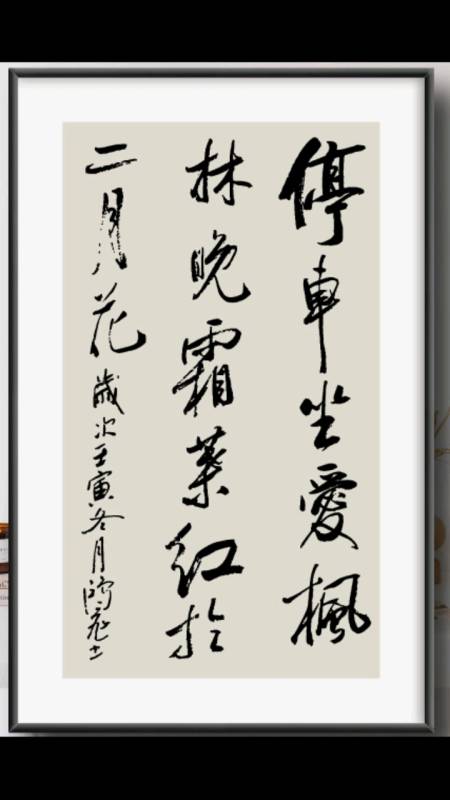 停車坐愛楓
林晚霜葉紅於
二月花
歲次壬寅冬月